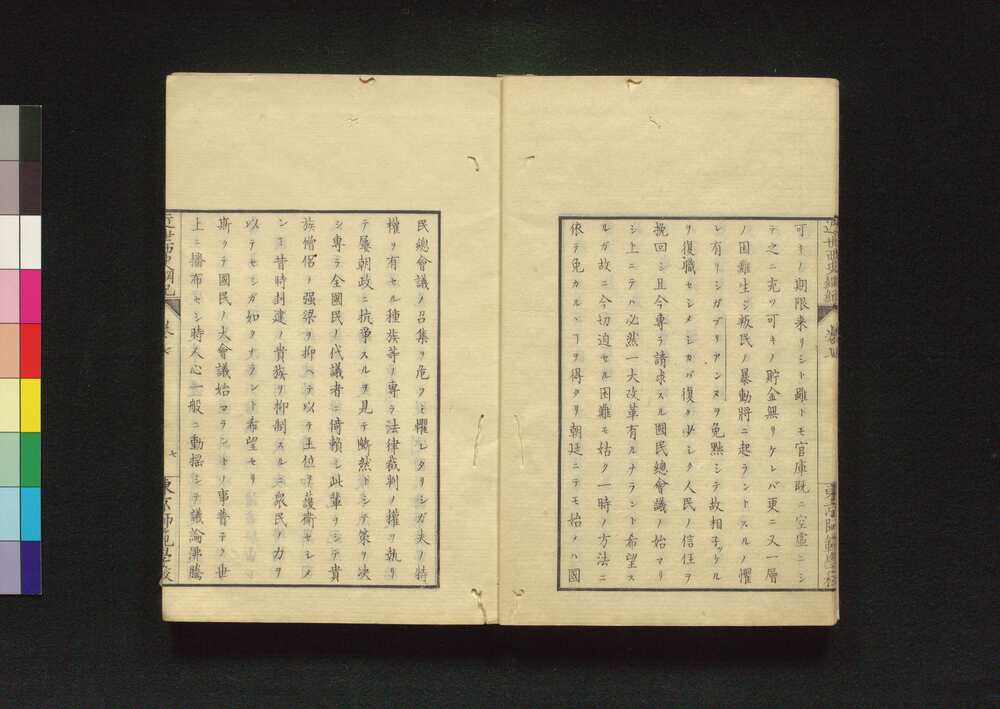 可キノ期限来リシト雖トモ官庫既ニ空虚ニシ
テ之ニ充ツ可キノ貯金無リケレバ更ニ又一層
ノ困難生シ叛民ノ暴動將ニ起ラントスルノ懼
レ有リシガブリアンヌヲ免黜シテ故相子ッケル
ヲ復職セシメシカバ復タ少シク人民ノ信任ヲ
挽回シ且今專ラ請求スル國民總會議ノ始マリ
シ上ニテハ必然一大改革有ルナラント希望ス
ルガ故ニ今切迫セル困難モ姑ク一時ノ方法ニ
依テ免カルヽヿヲ得タリ朝廷ニテモ始メハ國
民總會議ノ召集ヲ危フミ懼レタリシガ夫ノ特
權ヲ有セル種族等ノ專ラ法律裁判ノ權ヲ執リ
テ屡朝政ニ抗爭スルヲ見テ断然トシテ策ヲ决
シ專ラ全國民ノ代議者ニ倚賴シ此輩ヲシテ貴
族僧侶ノ强梁ヲ抑ヘテ以テ王位ヲ護衛セシメ
ンヿ昔時封建ノ貴族ヲ抑制スルニ衆民ノ力ヲ
以テセシガ如クナラント希望セリ
斯クテ國民ノ大會議始マラントノ事普子ク世
上ニ播布セシ時人心一般ニ動搖シテ議論沸騰
七